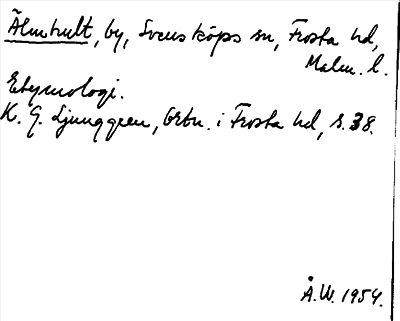 Älmhult, by, Svensköps sn, Frosta hd,
Malm. l.
Etymologi.
K. G. Ljunggren, Ortn. i Frosta hd, s. 38.
Å. W. 1954.